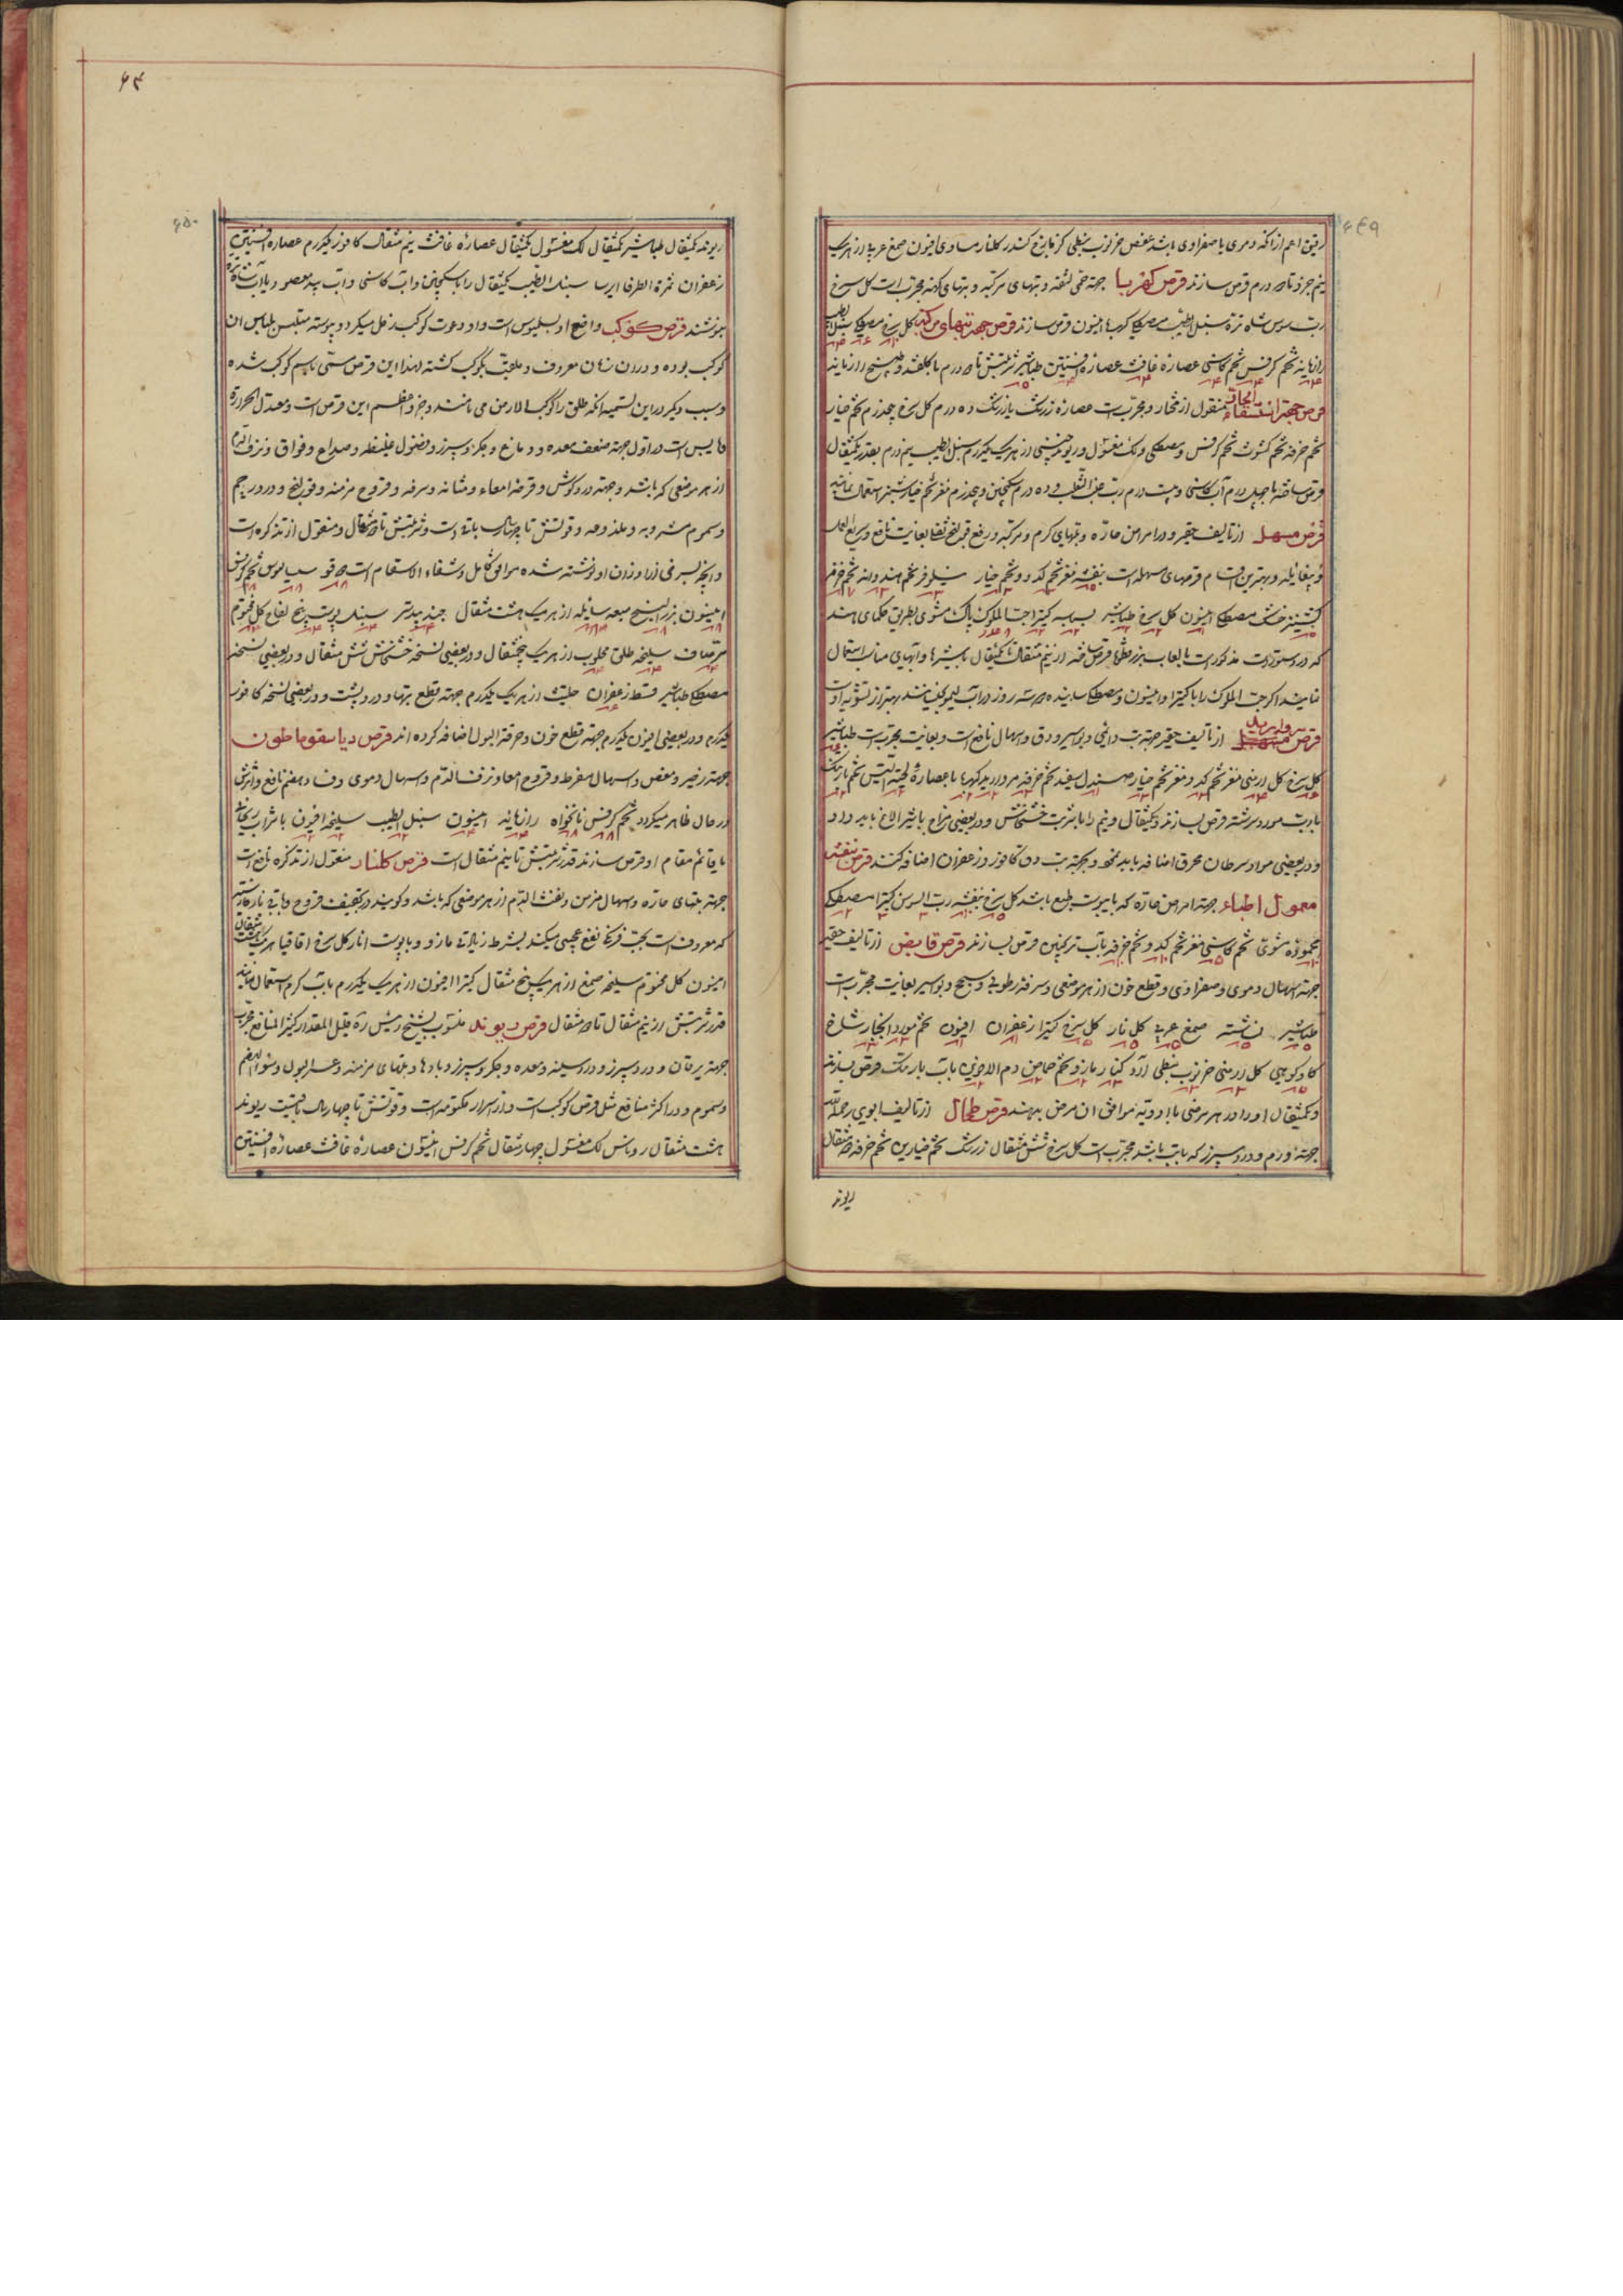 رقیق اعم از آنکه دموی یا صفراوی باشد عفص خرنوب نبطی کزمازج کندر کلنار مساوی افیون صمغ عربی از هریک
نیم جزو تا دو درم قرص سازند قرص کهربا جهة حمی لثقه و تبهای مرکبه و تبهای کهنه مجربست کل سرخ
رب سوس شاه تره سنبل الطیب مصطکی کهربا انیسون قرص سازند قرص جهة تبهای مرکبه کل سرخ مصطکی سنبل الطیب
رازیانه تخم کرفس تخم کاسنی عصاره غافث عصاره افسنتین طباشیر شربتش تا دو درم با کلقند و طبیخ رازیانه
قرص جهة استسقاء الحار منقول از مختار و مجربست عصاره زرشک یا زرشک ده درم کل سرخ پنجدرم تخم خیار
تخم خرفه تخم کشوث تخم کرفس و مصطکی و لک مغسول و ریوند چینی از هریک یکدرم سنبل الطیب نیم درم بقدر یکمثقال
قرص ساخته با چهل درم آب کاسنی و بیست درم رب عنب الثعلب و ده درم سکنجبین و پنجدرم مغز خیارشنبر استعمال نمایند
قرص مسهل از تالیف حقیر و در امراض حاره و تبهای کرم و مرکبه و رفع قبل نضج نفعا بغایت نافع و سریع العمل
و بیغائله و بهترین اقسام قرصهای مسهله است بنفشه مغز تخم کدو و تخم خیار نیلوفر تخم هندوانه تخم خرفه
کشنیز خشک مصطکی انیسون کل سرخ طباشیر کتیرا حب الملوک پاک مشوی بطریق حکمای هند
که در دستورات مذکور است با لعاب بزرقطونا قرص ساخته از نیم مثقال تا یکمثقال با شیرها و آبهای مناسب استعمال
نمایند اکر حب الملوک را با کتیرا و انیسون و مصطکی سائیده سه روز در آب لیمو بخیسانند بهتر از تشویه اوست
قرص مروارید از تالیف حقیر جهة تب دائمی و بواسیر و دق و اسهال نافعست و بغایت مجربست طباشیر
کل سرخ کل ارمنی مغز تخم کدو مغز تخم خیار صندل سفید تخم خرفه مروارید کهربا با عصاره لحیة التیس تخم بارتنک
با رب مورد سرشته قرص سازند و یکمثقال و نیم را با شربت خشخاش و در بعضی مزاج با شیر الاغ باید داد
و در بعضی مواد سرطان محرق اضافه باید نمود و بجهة تب دق کافور و زعفران اضافه کنند قرص بنفشه
معمول اطباء جهة امراض حاره که با یبوست طبع باشد کل سرخ بنفشه رب السوس کتیرا مصطکی
محموده مشوی تخم کاسنی مغز تخم کدو تخم خرفه بآب ترنجبین قرص سازند قرص قابض از تالیف حقیر
جهة اسهال دموی و صفراوی و قطع خون از هر موضعی و سرفه رطوبی و سحج و بواسیر بغایت مجربست
طباشیر نشاسته صمغ عربی کل نار کل سرخ کتیرا زعفران افیون تخم مورد انجبار شاخ
کاو کوهی کل ارمنی خرنوب نبطی آرد کنار مازو تخم حماض دم الاخوین بآب بارتنک قرص سازند
و یکمثقال او را در هر مرضی با ادویه موافق آن مرض بدهند قرص طحال از تالیف ابوی رحمه الله
جهة ورم و درد سپرز که با تب باشد مجربست کل سرخ شش مثقال زرشک تخم خیارین تخم خرفه مثقال
ریوند
۶۴
ریوند یکمثقال طباشیر یکمثقال لک مغسول یکمثقال عصاره غافث نیم مثقال کافور یکدرم عصاره افسنتین
زعفران ثمرة الطرفا ایرسا سنبل الطیب یکمثقال را با سکنجبین و آب کاسنی و آب بید معصور یا آب شاه تره
بنوشند قرص کوکب واضع او بسلیوس است و او دعوت کوکب زحل میکرد و پیوسته متلبس بلباس آن
کوکب بوده و در آن زمان معروف و ملقب بکوکب کشته لهذا این قرص مسمی باسم کوکب شده
و سبب دیکر در این تسمیه آنکه طلق را کوکب الارض می نامند و جزو اعظم این قرص است و معتدل الحرارة
و یابس است در اول جهة ضعف معده و دماغ و جکر و سپرز و فضول غلیظه و صداع و فواق و نزف الدم
از هر موضعی که باشد و جهة درد کوش و قرحه امعاء و مثانه و سرفه و قروح مزمنه و قولنج و درد رحم
و سموم مشروبه و ملذوعه و قوتش تا چهار سال باقیست و شربتش تا دو مثقال و منقول از تذکره است
و آنچه بسرخی از اوزان او نوشته شده موافق کامل و شفاء الاسقام است دوقو سیسالیوس تخم کرفس
انیسون بزرالبنج میعه سائله از هریک هشت مثقال جندبیدستر سنبل پوست بیخ لفاح کل مختوم
مر صاف سلیخه طلق محلوب از هریک پنجمثقال و در بعضی نسخه خشخاش شش مثقال و در بعضی نسخه
مصطکی طباشیر قسط زعفران حلتیت از هریک یکدرم جهة قطع تبها و درد پشت و در بعضی نسخه کافور
یکدرم و در بعضی افیون یکدرم جهة قطع خون و حرقة البول اضافه کرده اند قرص دیاسقوماطون
جهة زحیر و مغص و اسهال مفرط و قروح امعا و نزف الدم و اسهال دموی و فساد هضم نافع و اثرش
در حال ظاهر میکردد تخم کرفس نانخواه رازیانه انیسون سنبل الطیب سلیخه افیون با شراب ریحانی
یا قائم مقام او قرص سازند قدر شربتش تا نیم مثقال است قرص کلنار منقول از تذکره نافعست
جهة تبهای حاره و اسهال مزمن و نفث الدم از هر موضعی که باشد و کویند در تجفیف قروح و باقی نار فارسی
که معروفست بحب فرنج نفع عجیبی میکند بشرط زیادتی مازو و پوست انار کل سرخ اقاقیا هریک هفت مثقال
انیسون کل مختوم سلیخه صمغ از هریک پنج مثقال کتیرا افیون از هریک یکدرم بآب کرم استعمال نمایند
قدر شربتش از نیم مثقال تا دو مثقال قرص ریوند منسوب بشیخ رئیس ره قلیل المقدار کثیر المنافع مجرب
جهة یرقان و درد سپرز و درد سینه و معده و جکر و سپرز و بادها و تبهای مزمنه و عسر البول و سوء الهضم
و سموم و در اکثر منافع مثل قرص کوکب است و از اسرار مکتومه است و قوتش تا چهار سال باقیست ریوند
هشت مثقال روناس لک مغسول چهار مثقال تخم کرفس انیسون عصاره غافث عصاره افسنتین